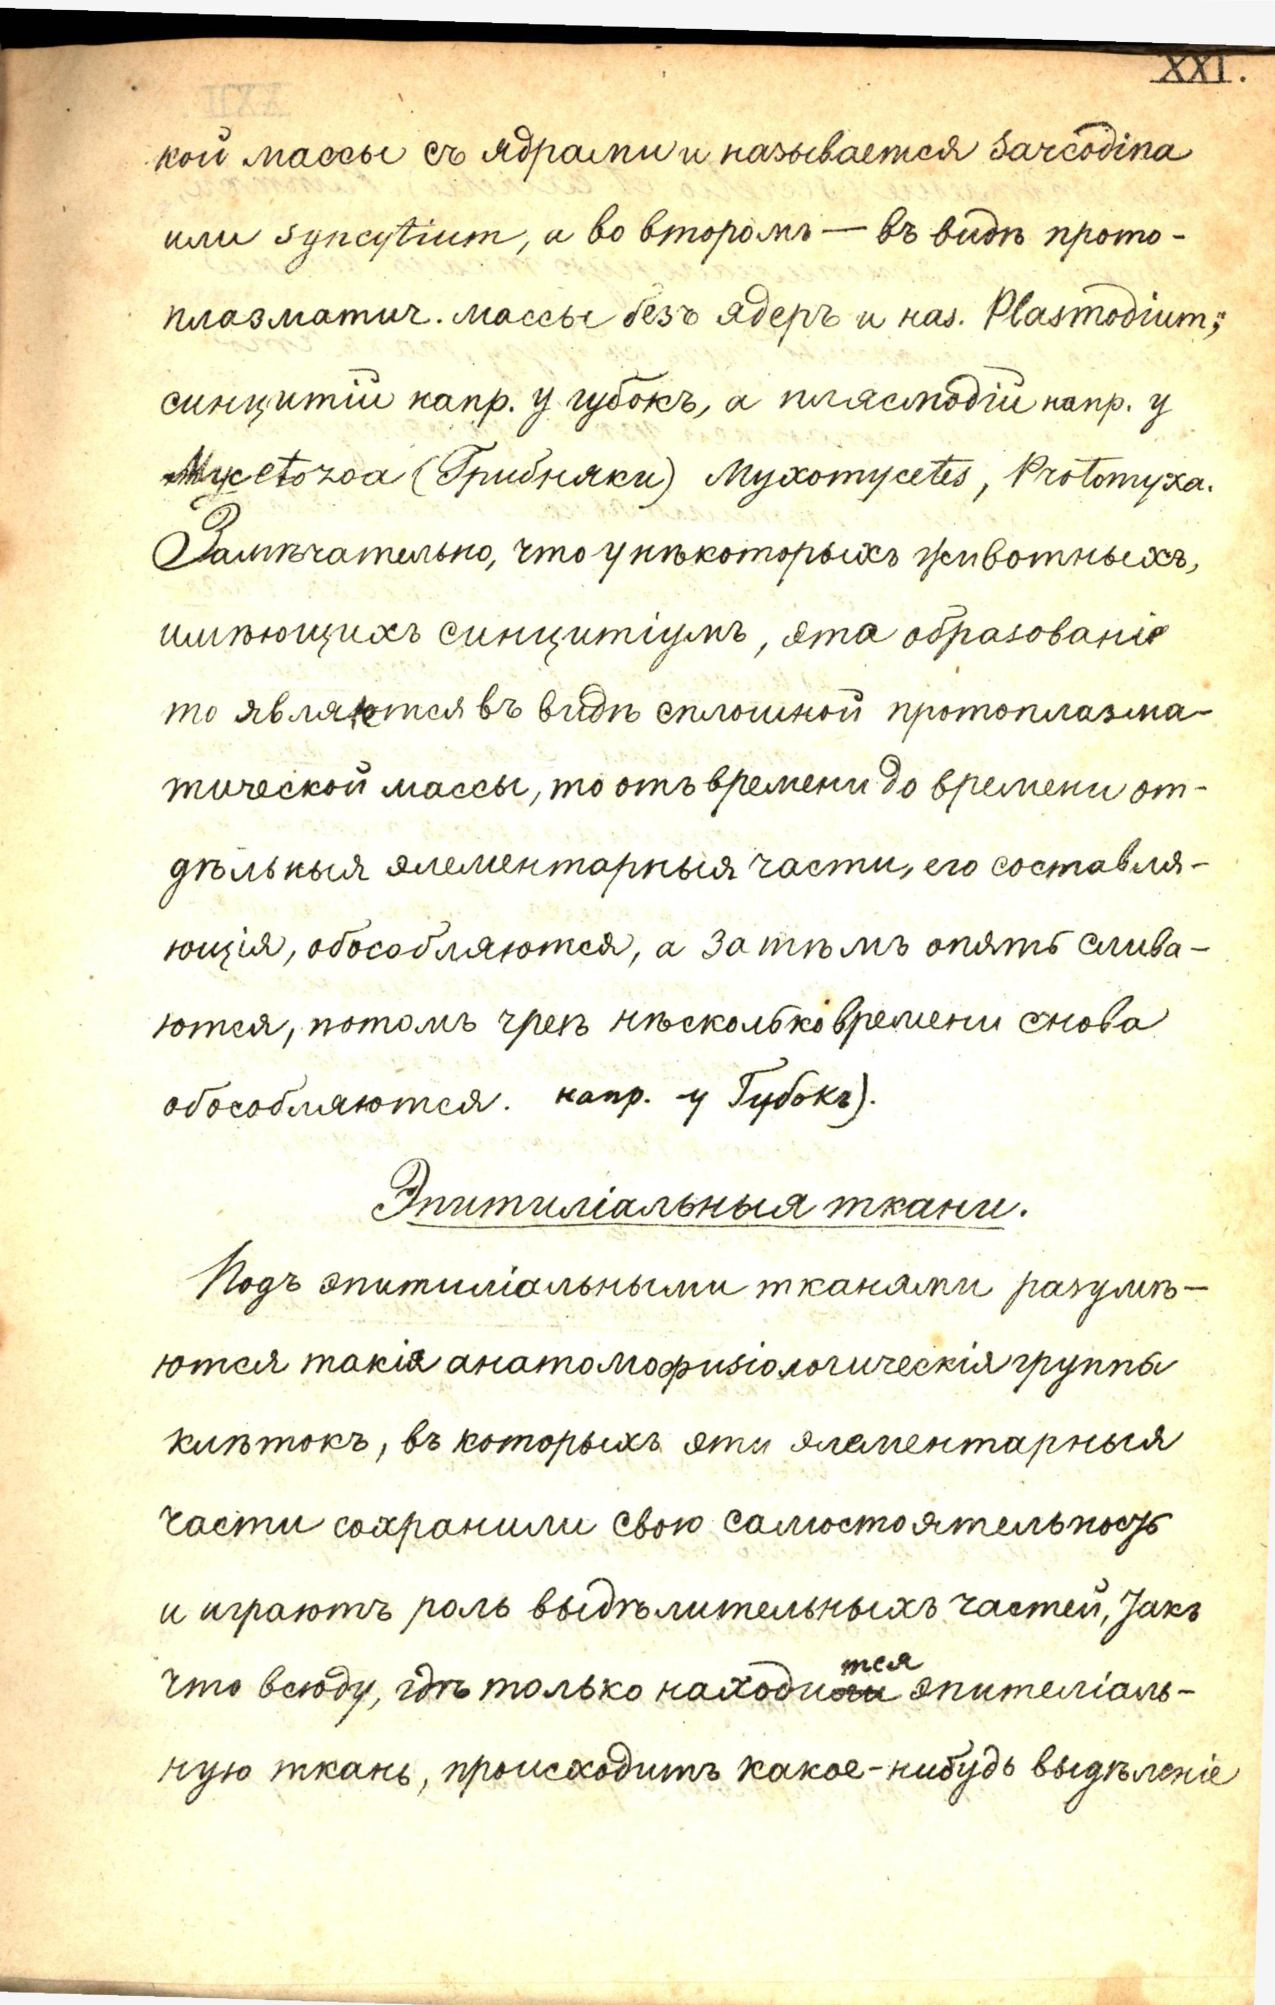 XXI.
кой массы съ ядрами и называется Sarcodina
или Syncytium, а во второмъ — въ видѣ прото-
плазматич. массы безъ ядеръ и наз. Plasmodium;
синцитій напр. у губокъ, а плясмодій напр. у
Mycetozoa (Грибняки) Myxomycetes, Protomyxa.
Замѣчательно, что у нѣкоторыхъ животныхъ,
имѣющихъ синцитіумъ, эта образованіе
то являются въ видѣ сплошной протоплазма-
тической массы, то отъ времени до времени от-
дѣльныя элементарныя части, его составля-
ющія, обособляются, а затѣмъ опять слива-
ются, потомъ чрезъ нѣсколько времени снова
обособляются. напр. у Губокъ).
Эпитиліальныя ткани.
Подъ эпитиліальными тканями разумѣ-
ются такія анатомофизіологическія группы
клѣтокъ, въ которыхъ эти элементарныя
части сохранили свою самостоятельность
и играютъ роль выдѣлительныхъ частей, такъ
что всюду, гдѣ только находится эпителіаль-
ную ткань, происходитъ какое-нибудь выдѣленіе